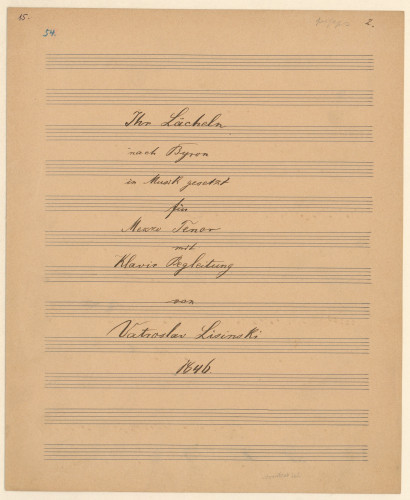 15.
54.
2.
Ihr Lächeln
nach Byron
in Musik gesetzt
für
Mezzo Tenor
mit
Klavir Begleitung
von
Vatroslav Lisinski
1846.